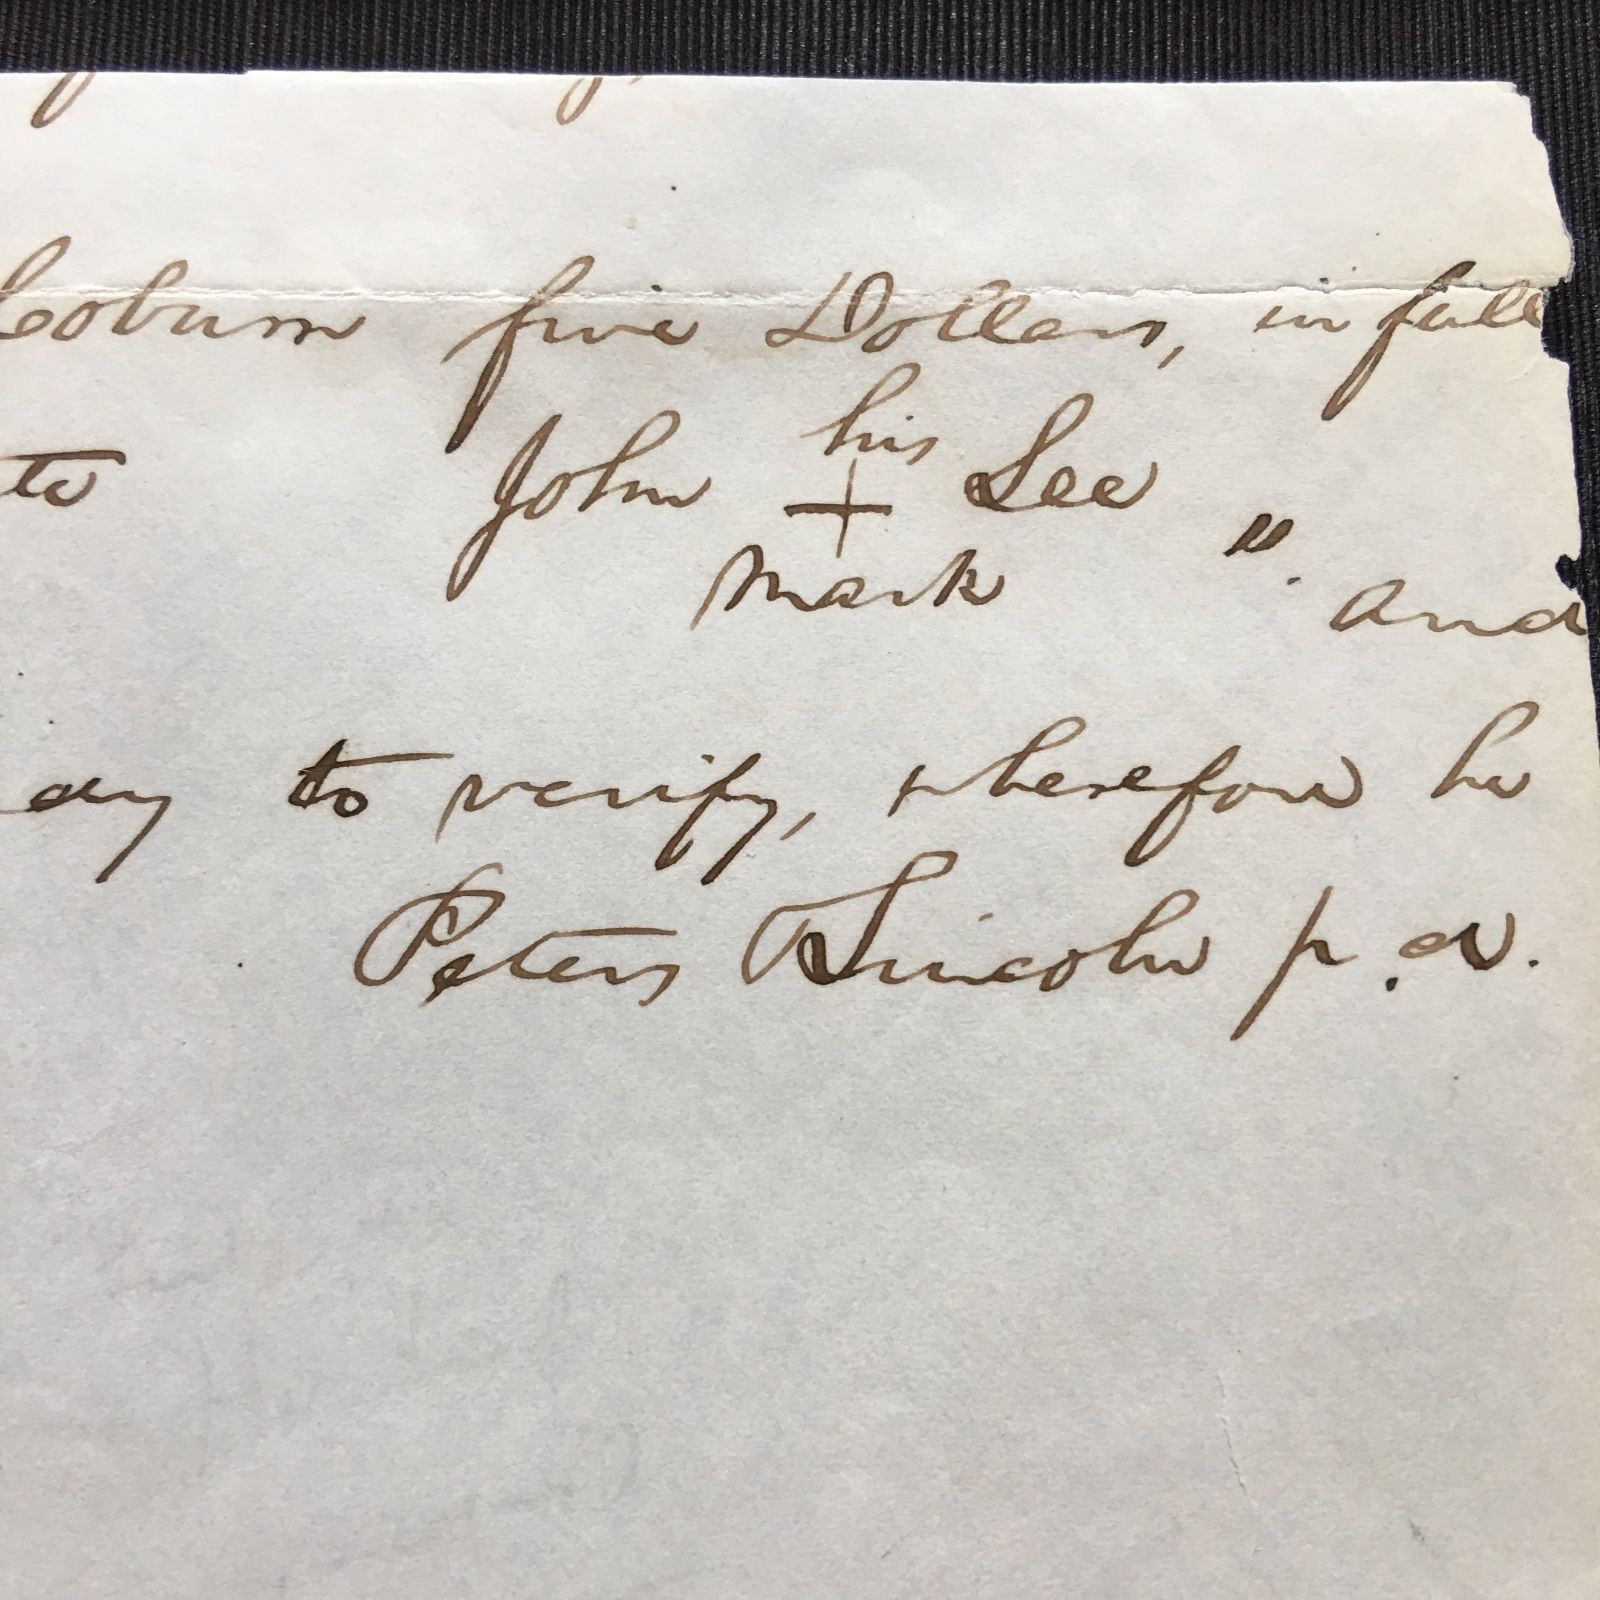 Coburn five Dollars, in full
his
John + Lee
mark ". and
to verify, wherefore he
Peters Lincoln p. d.